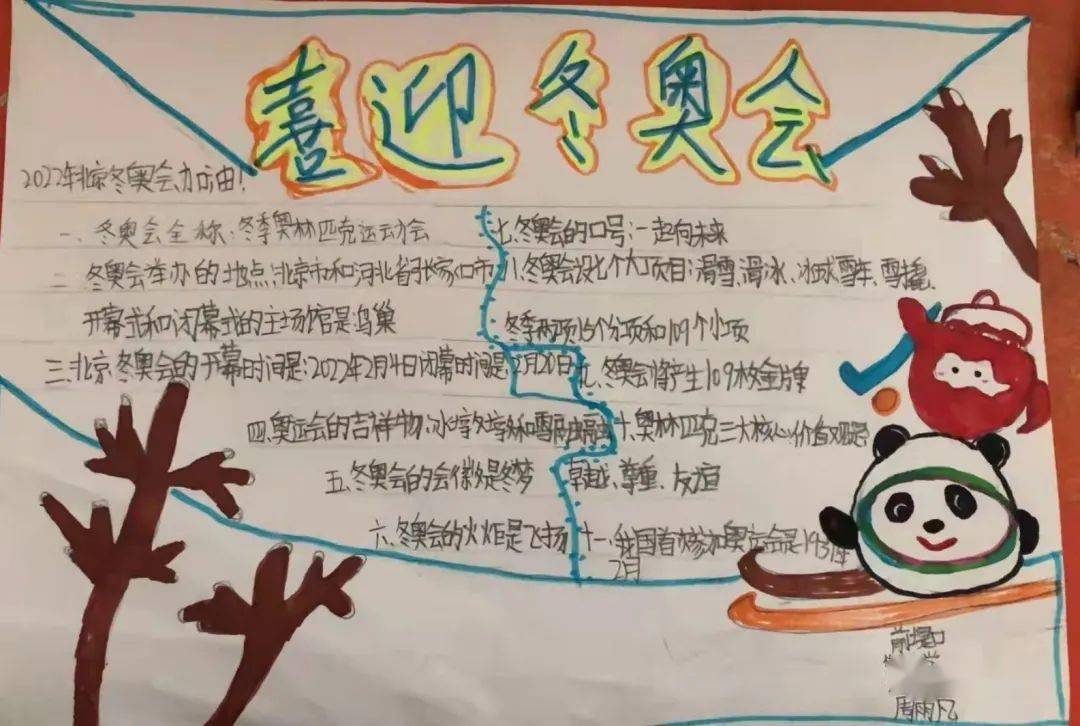 喜迎冬奥会
2022年北京冬奥会加油!
一、冬奥会全称:冬季奥林匹克运动会
二、冬奥会举办的地点:北京市和河北省张家口市
开幕式和闭幕式的主场馆是鸟巢
三、北京冬奥会的开幕时间是:2022年2月4日闭幕时间是:2月20日
四、奥运会的吉祥物:冰墩墩和雪容融
五、冬奥会的会徽是冬梦
六、冬奥会的火炬是飞扬
七、冬奥会的口号:一起向未来
八、冬奥会设七个大项目:滑雪、滑冰、冰球、雪车、雪橇、
冬季两项15个分项和109个小项
九、冬奥会将产生109枚金牌
十、奥林匹克三大核心价值观是
卓越、尊重、友谊
十一、我国首次参加奥运会是193
2月
前堤口
周雨凡